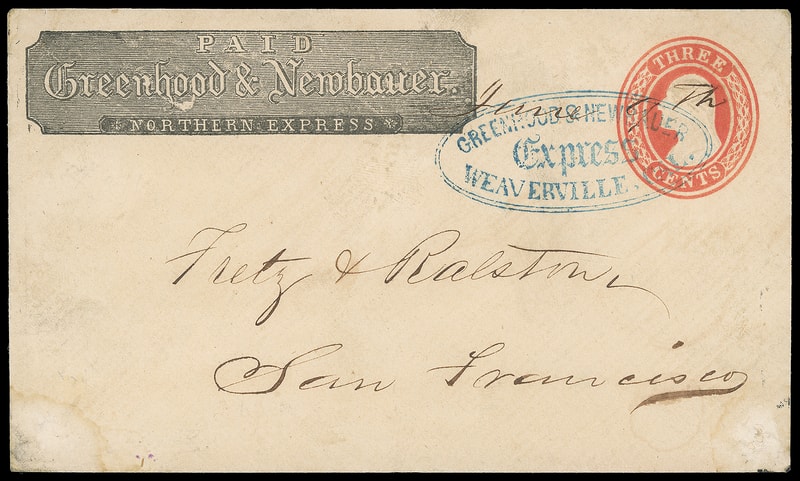 PAID
Greenhood & Newbauer.
NORTHERN EXPRESS
THREE
CENTS
June 7th
GREENHOOD & NEWBAUER
Express
WEAVERVILLE.
Fretz & Ralston,
San Francisco